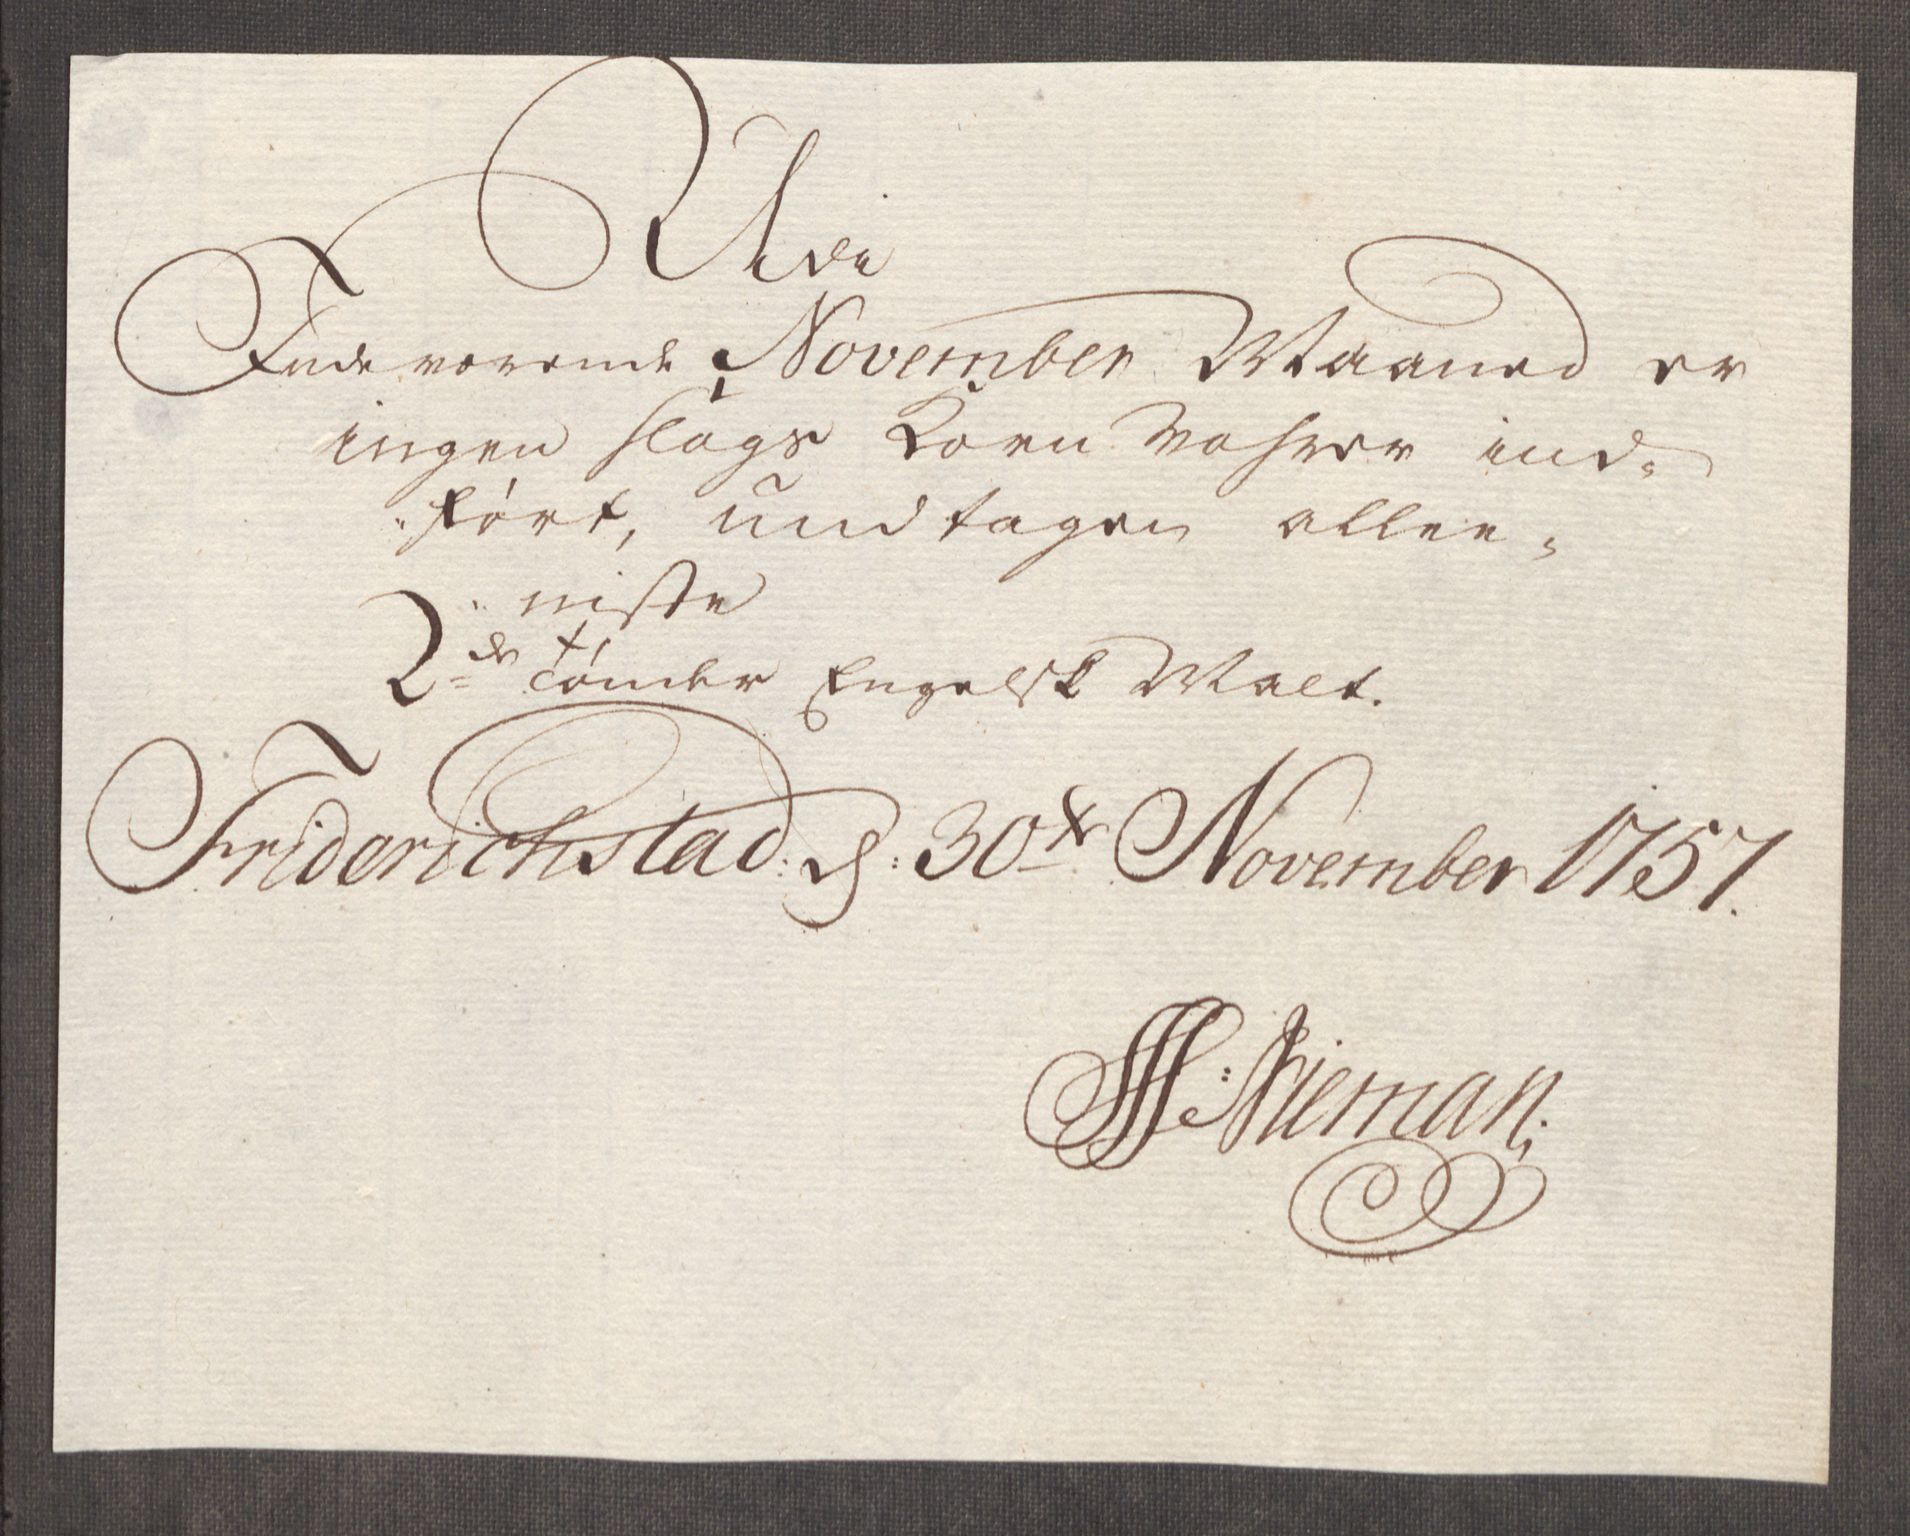 Udi
Indeværende November Maaned er
ingen slags Korn Vahrer ind„
„ført, undtagen allee„
„niste
2de Tønder Engelsk Malt.
Friderichstad d: 30te November 1757.
H: Nieman